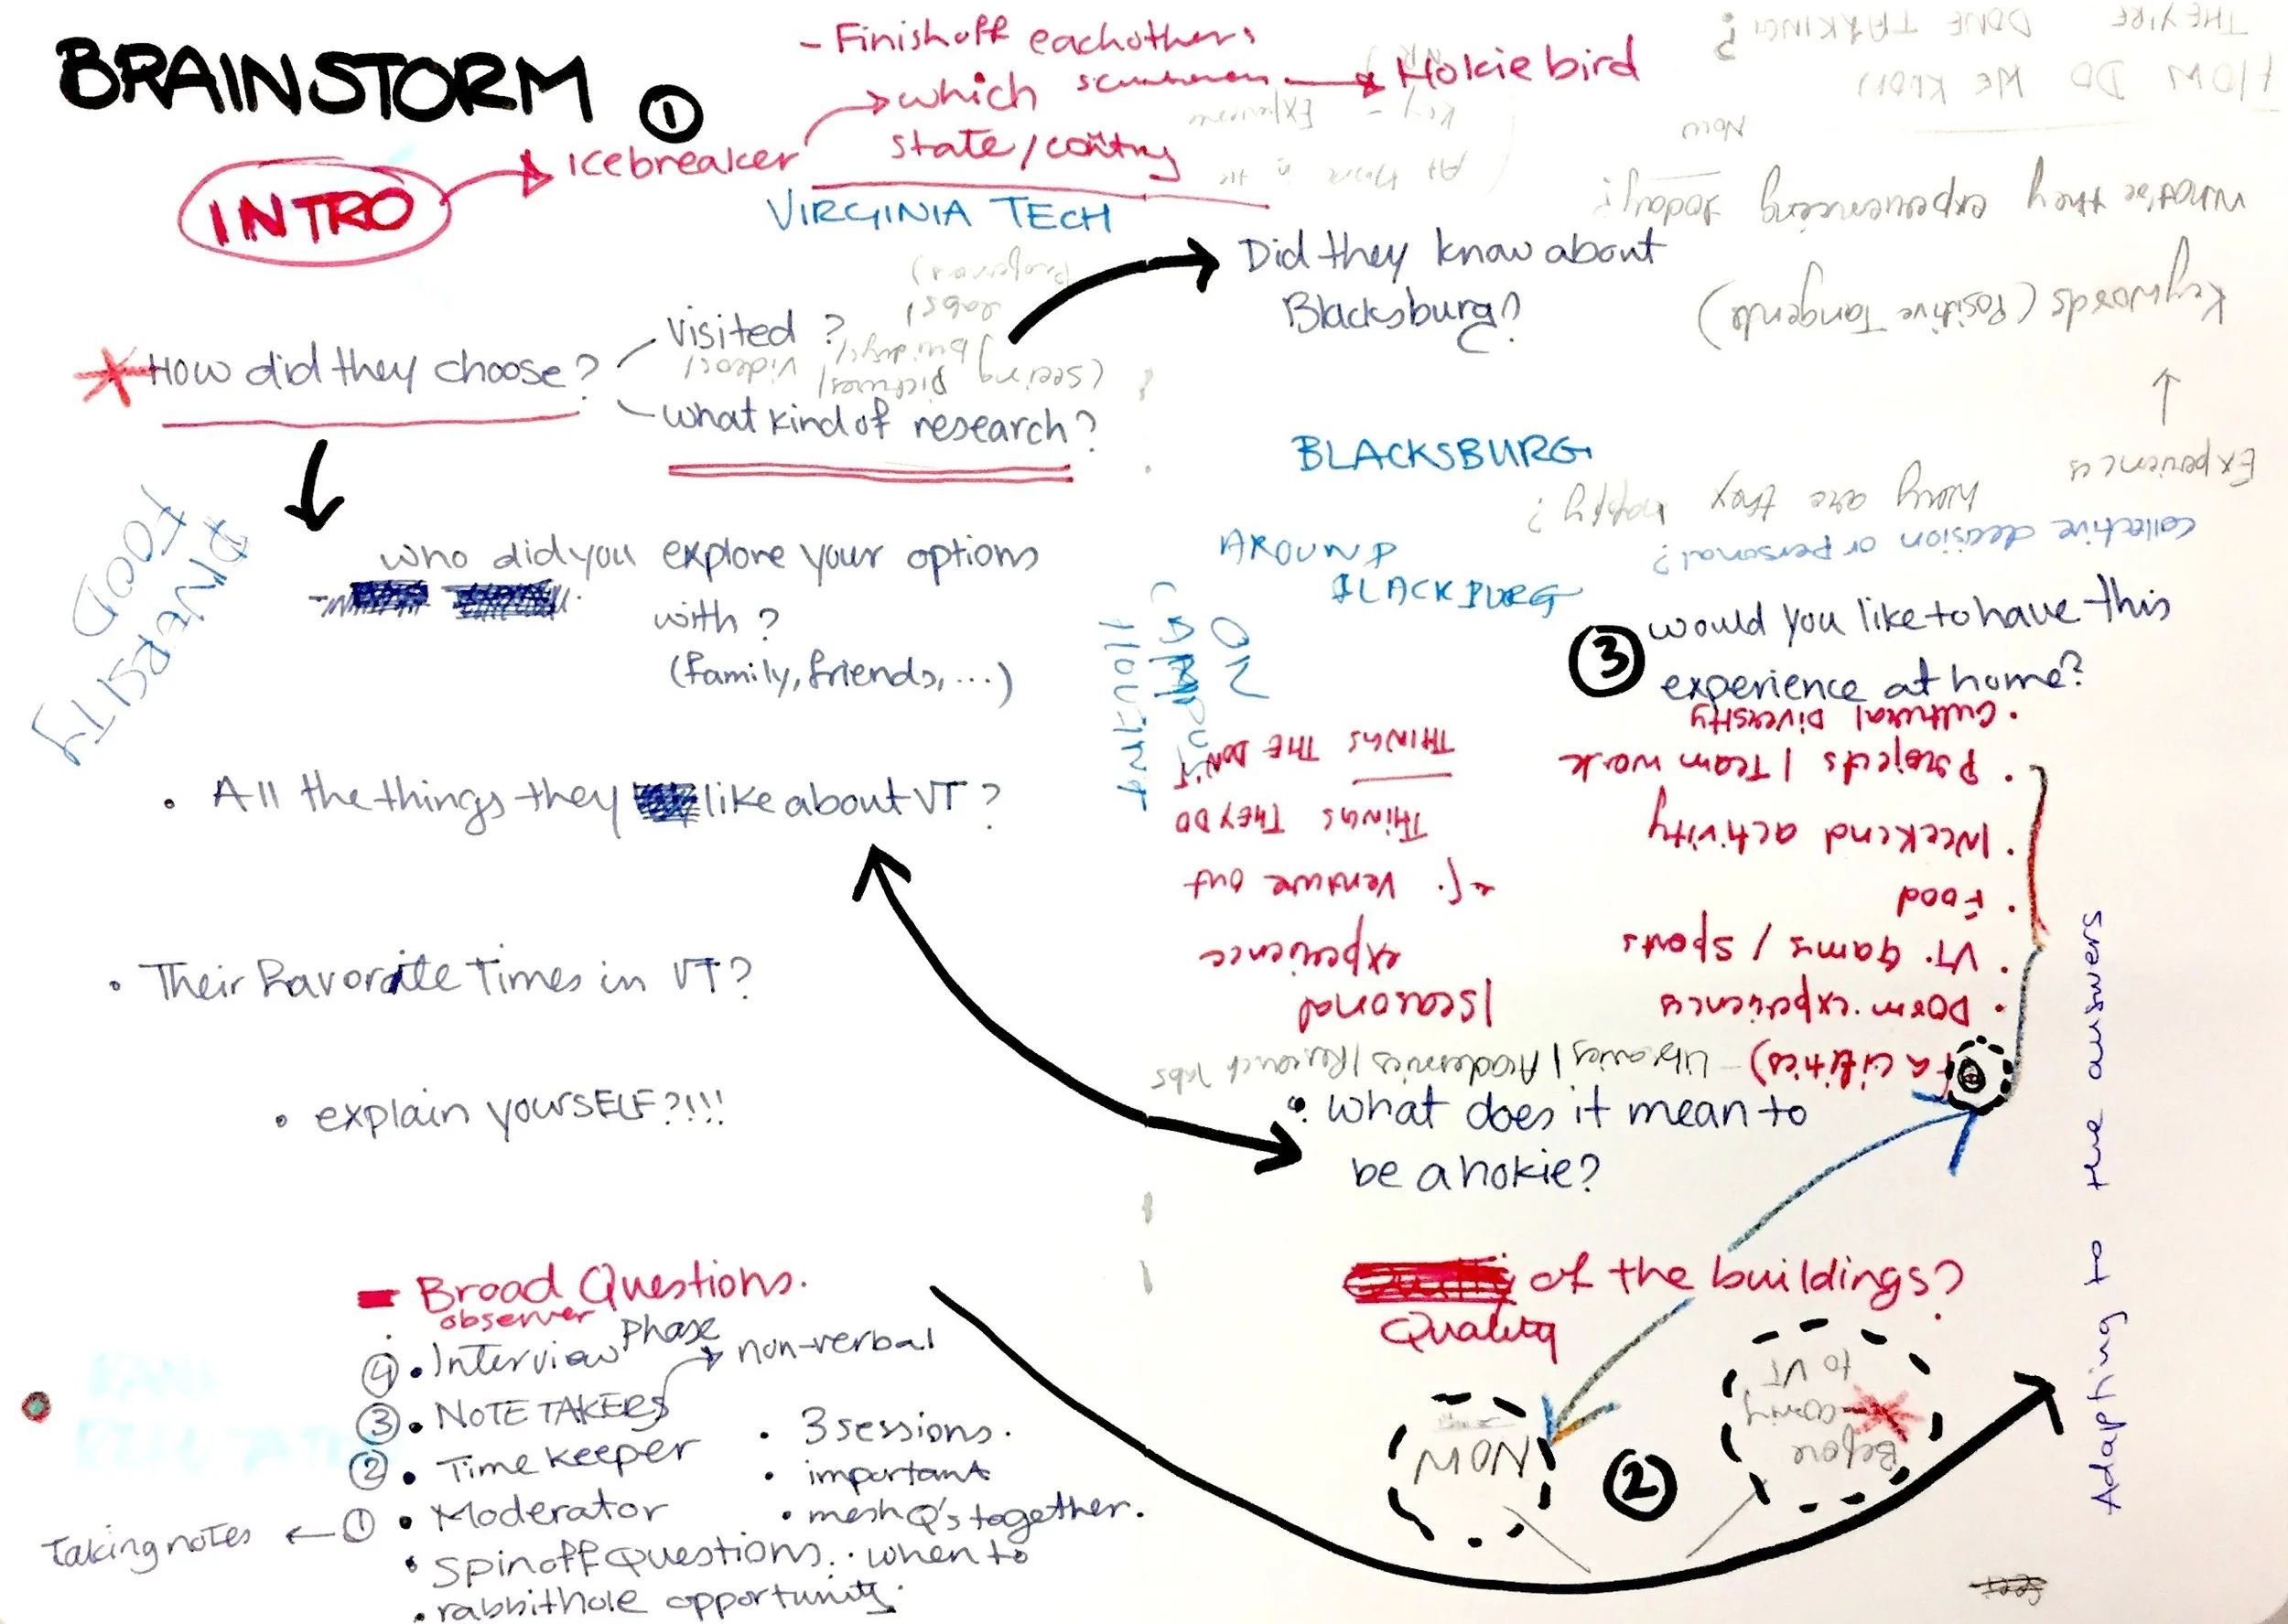 BRAINSTORM ①
- Finish off eachothers
which → Hokie bird
state/
INTRO → Icebreaker
VIRGINIA TECH
Did they know about
Blacksburg?
How did they choose?
Visited ?
what kind of research?
who did you explore your options
with ?
(family, friends, ...)
• All the things they like about VT ?
• Their favorite Times in VT?
• explain yoursELF?!!!
DIVERSITY
FOOD
BLACKSBURG
AROUND
BLACKBURG
ON
CAMPUS
THEY'RE DONE TALKING?
HOW DO WE KNOW
NOW
What're they experiencing today?
Keywords (Positive Tangents)
Experiences
Why are they happy?
Collective decision or personal?
(seeing pictures/ videos/
labs/
③ would you like to have this
experience at home?
• Cultural Diversity
• Projects / Team work
• Weekend activity
• Food
• VT. games / sports
• Dorm. experience
Facilities) - Libraries / Academics / Research labs
THINGS THE DON'T
THINGS THEY DO
venture out
experience
/seasonal
• what does it mean to
be a hokie?
of the buildings?
Quality
NOW
②
Before
coming
to VT
Adapting to the answers
- Broad Questions.
observer
④ • Interview Phase
③ • NOTE TAKERS → non-verbal
② • Time keeper
Taking notes ← ① • Moderator
• spinoff Questions. • when to
• rabbithole opportunity.
• 3 sessions.
• important
• mesh Q's together.